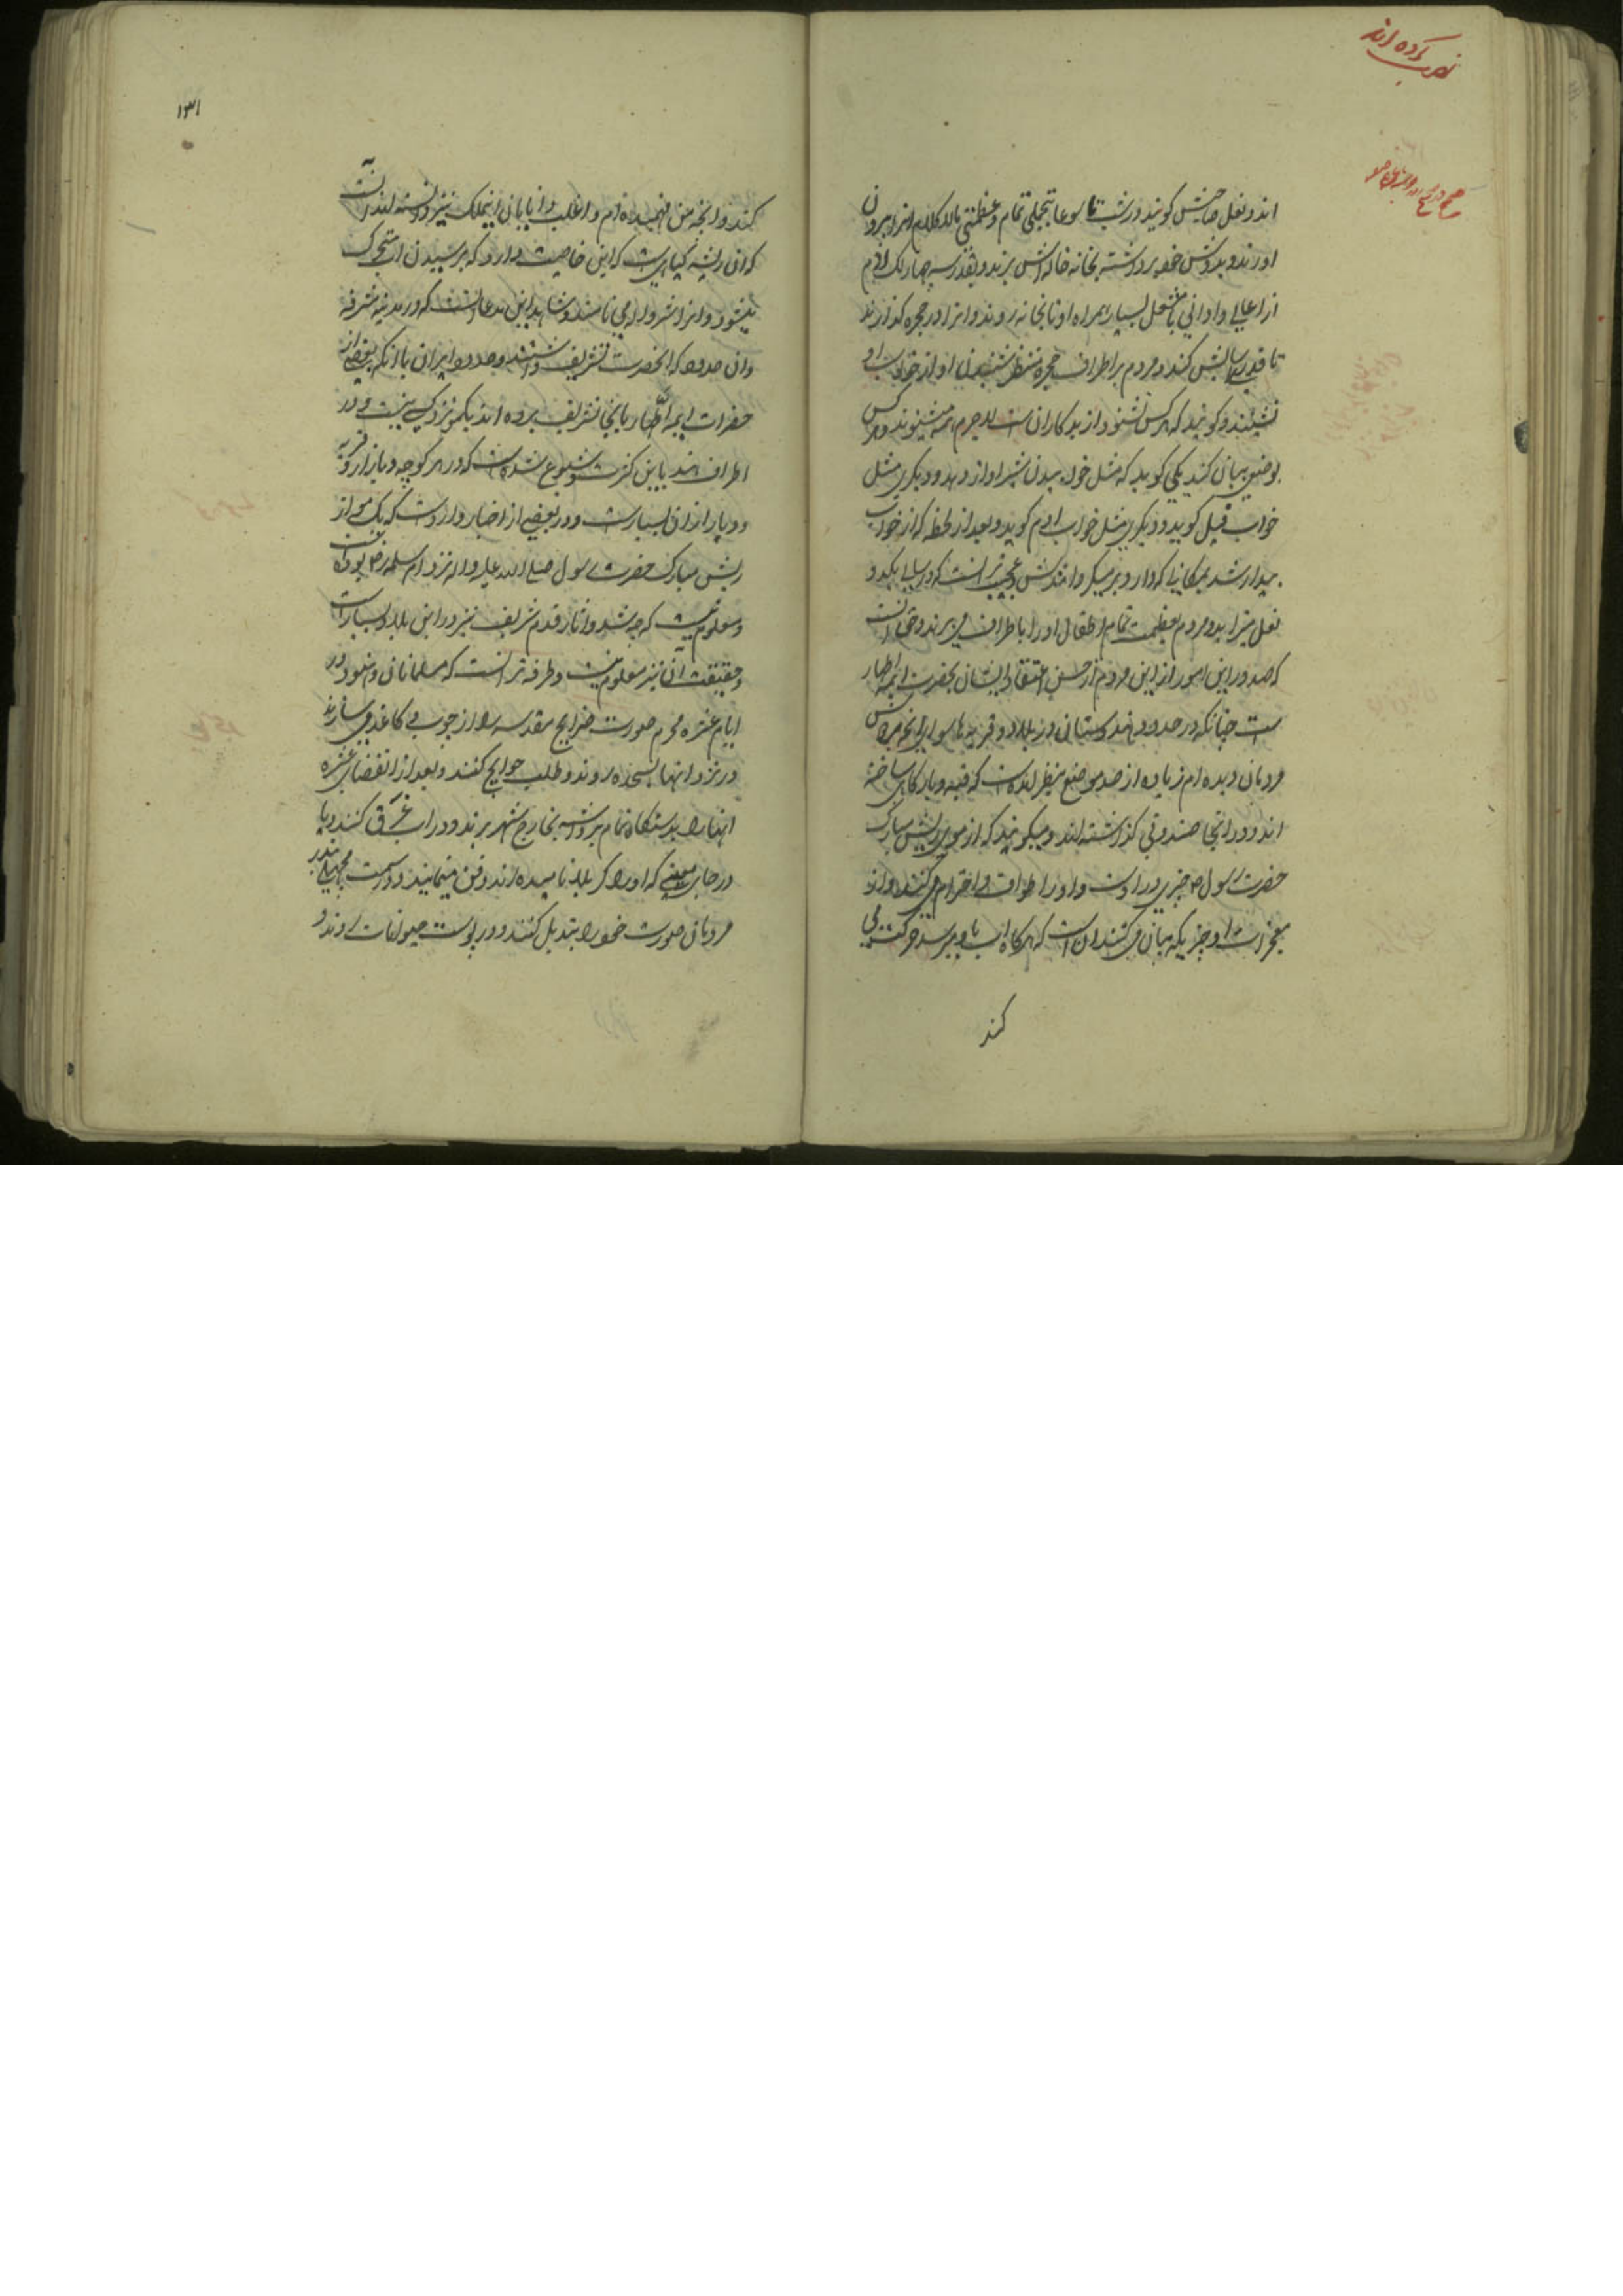 نصب کرده اند
اند و نعل صاحبش کویند و در شب تاسوعا بتجملی تمام و عظمتی مالا کلام انرا بیرون
اورند و بدوش خود برداشته بخانه خاله اش برند و بقدر سه چهار لک ادم
از اعالی و ادانی با مشعل بسیار همراه او تا بخانه روند و انرا در حجره کذارند
تا قدری اسایش کند و مردم بر اطراف حجره منتظر شنیدن اواز خواب او
نشینند و کویند که هر کس نشنود از بد کاران است لا جرم همه میشنوند و هر کس
بوضعی بیان کند یکی کوید که مثل خوابیدن شیر اواز دهد و دیکری مثل
خواب فیل کوید و دیکری مثل خواب ادم کوید و بعد از لحظه که از خواب
بیدار شد بمکانی که دارد بر میکردانندش و عجیب تر انست که در سالی یکدو
نعل میزاید و مردم بعظمت تمام اطفال او را باطراف می برند و حق انست
که صدور این امور از این مردم از حسن اعتقاد ایشان بحضرت ایمه اطهار
ست چنانکه در حدود هندوستان در بلاد و قریه ها سوای انچه من بس
مردمان دیده ام زیاده از صد موضع بنظر امده است که قبه و بارکاهی ساخته
اند و در انجا صندوقی کذاشته اند و میکویند که از موی ریش مبارک
حضرت رسول ص چیزی در اوست و او را طواف و احترام می کنند و از
معجزات او چیزیکه بیان می کنند ان است که هرکاه اب باو برسد حرکت می
کند
۱۳۱
کند و انچه من فهمیده ام و اغلب دانایان اینملک نیز دانسته اند انست
که ان ریشه کیاهی است که این خاصیت دارد که برسیدن اب متحرک
میشود و انرا می نامند و شاهد این مدعا انست که در مدینه مشرفه
و ان حدود که انحضرت تشریف داشتند و حدود ایران با انکه بعضی از
حضرات ایمه اطهار بانجا تشریف برده اند یکمو نزد کسی نیست و در
اطراف هند باین کثرت شیوع شده است که در هر کوچه و بازار و قریه
و دیار از ان بسیار است و در بعضی از اخبار وارد است که یک موی از
ریش مبارک حضرت رسول صلی الله علیه و اله نزد ام سلمه رض بوده است
و معلوم نیست که چه شد و اثار قدم شریف نیز در این بلاد بسیار است
و حقیقت آن نیز معلوم نیست و طرفه تر انست که مسلمانان و هنود در
ایام عشره محرم صورت ضرایح مقدسه را از چوب و کاغذ می سازند
و در نزد انها بسجده روند و طلب حوایج کنند و بعد از انقضای عشره
انها را بدستکاه تمام برداشته بخارج شهر برند و در اب غرق کنند و یا
در جای معینی که او را کربلا نامیده اند دفن مینمایند و در سمت مچهلی بندر
مردمان صورت خود را تبدیل کنند و در پوست حیوانات روند و